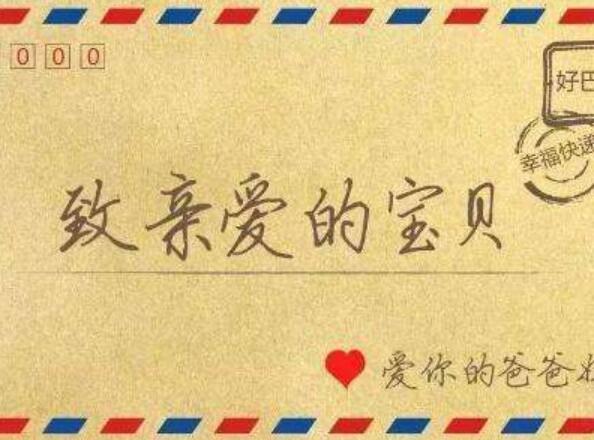 000
好巴
幸福快递
致亲爱的宝贝
爱你的爸爸